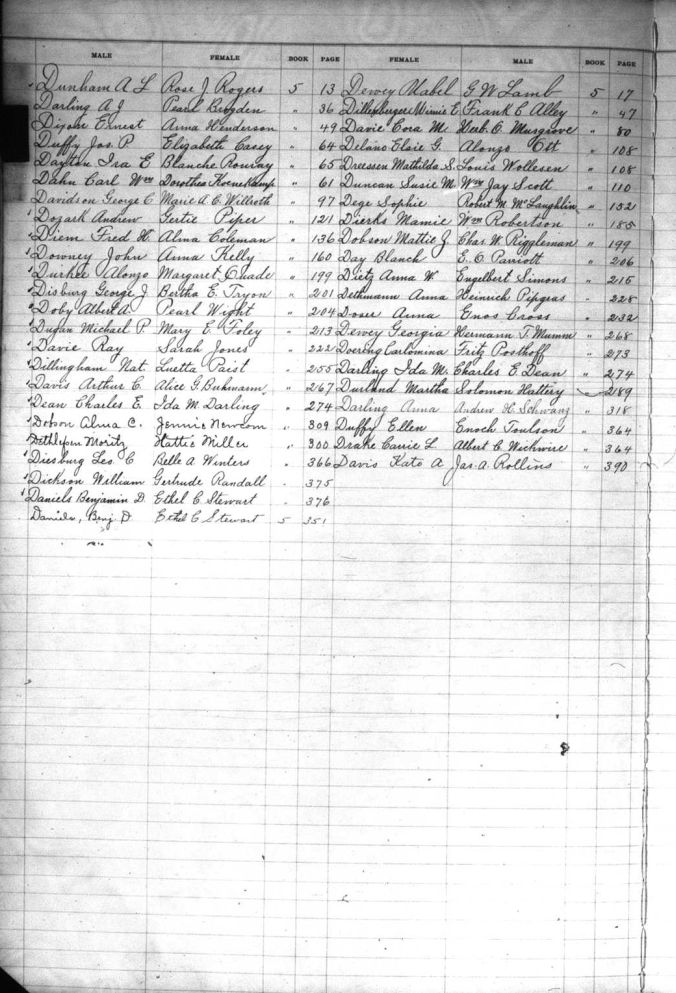 MALE FEMALE BOOK PAGE FEMALE MALE BOOK PAGE
Dunham A L Rose J Rogers 5 13 Dewey Mabel G W Lamb 5 17
Darling A J Pearl Brogden " 36 Dillenbergers Minnie E Frank C Alley " 47
Dixon Ernest Anna Henderson " 49 Davie Cora M. Herb. O. Musgrove " 80
Duffy Jos. P Elizabeth Casey " 64 Delano Elsie G. Alonzo Ott " 108
Dayton Ira E Blanche " 65 Dreessen Mathilda S. Louis Wollesen " 108
Dahn Carl Wm Dorothea Koenekamp " 61 Duncan Susie M. Wm Jay Scott " 110
Davidson George C Marie A. C. Willroth " 97 Dege Sophie Robert M. McLaughlin " 132
Dozark Andrew Gertie Piper " 121 Dierks Mamie Wm Robertson " 155
Diem Fred H. Alma Coleman " 136 Dobson Mattie J. Chas. W. Riggleman " 199
Downey John Anna Kelly " 160 Day Blanch E. O. Parriott " 206
Durkee Alonzo Margaret Quade " 199 Dietz Anna W. Engelbert Simons " 215
Disburg George J Bertha E. Tryon " 201 Dethmann Anna Heinrich Pipgras " 228
Doby Albert A. Pearl Wight " 204 Doser Anna Enos Cross " 232
Dugan Michael P. Mary E. Foley " 213 Dewey Georgia Hermann T. Mumm " 268
Davie Ray Sarah Jones " 222 Doering Carlomina Fritz Posthoff " 273
Dillingham Nat. Luetta Paist " 255 Darling Ida M. Charles E. Dean " 274
Davis Arthur C. Alice G. Buhmann " 267 Durland Martha Solomon Hattery " 289
Dean Charles E. Ida M. Darling " 274 Darling Anna Andrew H. Schwanz " 318
Dobson Alma C. Jennie Newcom " 309 Duffy Ellen Enoch Toulson " 364
Dethlefsen Moritz Hattie Miller " 300 Drake Carrie L Albert C. Wickwire " 364
Diesburg Leo. C Belle A Winters " 366 Davis Kate A Jas. A. Rollins " 390
Dickson William Gertrude Randall " 375
Daniels Benjamin D Ethel C. Stewart " 376
Daniels, Benj. D Ethel C Stewart 5 351